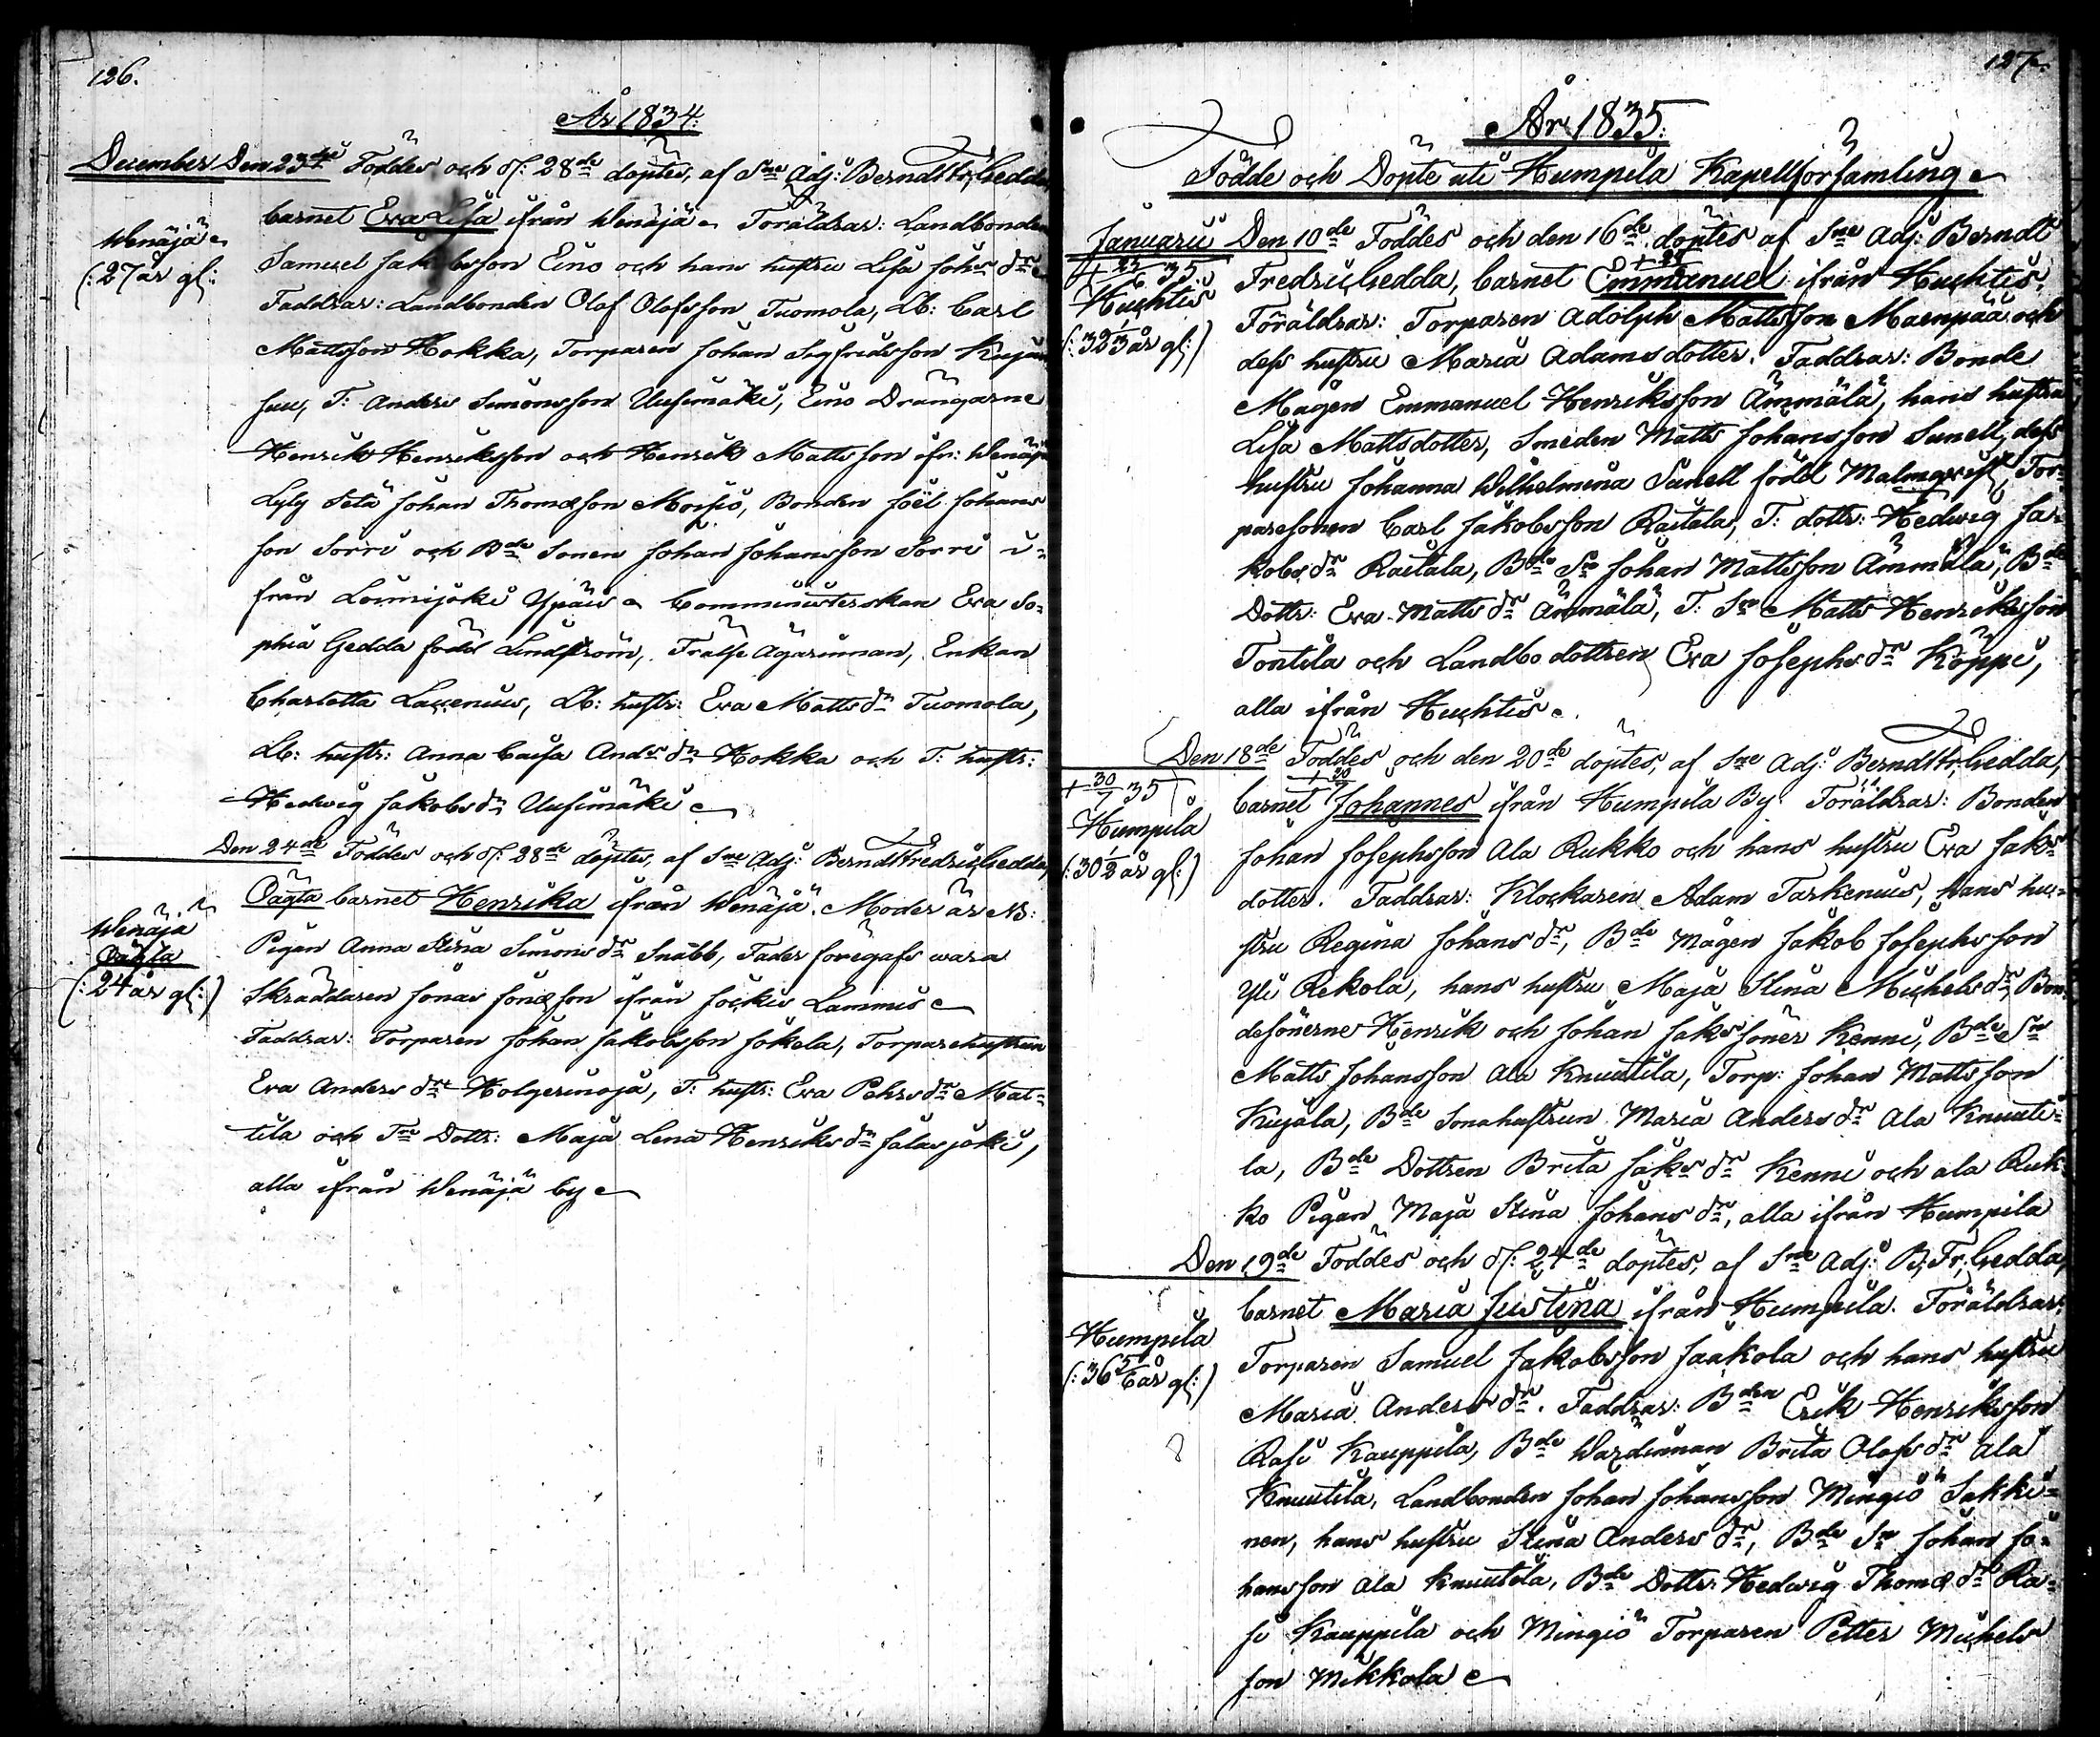 126.
År 1834.
December Den 23de Föddes och d/: 28de döptes, af Sne Adj: Berndt Fr: Gedda
Wenäjä
(: 27 år gl:
barnet Eva Lisa ifrån Wenäjä. Föräldrar: Landbonden
Samuel Jakobsson Eino och hans hustru Lisa Johs dr
Faddrar: Landbonden Olof Olofsson Tuomola, Lb: Carl
Mattsson Hokka, Torparen Johan Sigfridsson Kujan
suu, T: Anders Simonsson Uusimäki, Eino Drängarne
Henrik Henriksson och Henrik Mattsson ifr: Wenäjä
Lyly Setä Johan Thomæson Moisio, Bonden Joël Johans
son Sorri och Bde Sonen Johan Johansson Sorri i-
från Loimijoki Ypäis Comministerskan Eva So-
phia Gedda född Lindström, Frälse Ägarinnan, Enkan
Charlotta Laurenius, Lb: hustr: Eva Matts dr Tuomola,
Lb: hustr: Anna Caisa Ands dr Hokka och T: hustr:
Hedwig Jakobs dr Uusimäki
Den 24de Föddes och d/: 28de döptes, af Sne Adj: Berndt Fredric Gedda,
Wenäjä
Oägta
(: 24 år gl:)
Oägta barnet Henrika ifrån Wenäjä. Moder är NB:
Pigan Anna Stina Simons dr Snabb, Fader föregafs wara
Skräddaren Jonas Jonæson ifrån Jockis Lammis
Faddrar: Torparen Johan Jakobsson Jokela, Torparehustrun
Eva Anders dr Holgerinoja, T: hustr: Eva Pehrs dr Mat-
tila och Tre Dottr: Maja Lena Henriks dr Jalasjoki,
alla ifrån Wenäjä by
127.
År 1835.
Födde och Döpte uti Humpila Kapellförsamling
Januarii Den 10de Föddes och den 16de döptes af Sne Adj: Berndt
Huchtis
(: 32 1/3 år gl:)
Fredric Gedda, barnet Emmanuel ifrån Huchtis.
Föräldrar: Torparen Adolph Mattsson Maenpää och
dess hustru Maria Adamsdotter. Faddrar: Bonde
Mågen Emmanuel Henriksson Ämmälä, hans hustru
Lisa Mattsdotter, Smeden Matts Johansson Sunell, dess
hustru Johanna Wilhelmina Sunell född Malmqvist, Tor-
paresonen Carl Jakobsson Raitala, T: dottr: Hedwig Ja-
kobs dr Raitala, Bde Sn Johan Mattsson Ämmälä, Bde
Dottr: Eva Matts dr Ämmälä, T: Sn Matts Henriksson
Tontila och Landbo dottren Eva Josephs dr Köppi,
alla ifrån Huchtis
Den 18de Föddes och den 20de döptes, af Sne Adj: Berndt Fr: Gedda,
+ 30/7 35
Humpila
(: 30 1/2 år gl:)
barnet Johannes ifrån Humpila By. Föräldrar: Bonden
Johan Josephsson Ala Rukko och hans hustru Eva Jaks
dotter. Faddrar: Klockaren Adam Tarkenius, hans hu-
stru Regina Johans dr, Bde Mågen Jakob Josephsson
Yli Rekola, hans hustru Maja Stina Michels dr, Bon-
desönerne Henrik och Johan Jaks söner Kenni, Bde Sn
Matts Johansson Ala Knuutila, Torp: Johan Mattsson
Kujala, Bde Sonahustrun Maria Anders dr Ala Knuuti-
la, Bde Dottren Brita Jaks dr Kenni och ala Ruk-
ko Pigan Maja Stina Johans dr, alla ifrån Humpila
Den 19de Föddes och d/: 24de döptes, af Sne Adj: B: Fr: Gedda,
Humpila
(: 36 5/6 år gl:)
barnet Maria Justina ifrån Humpila. Föräldrar:
Torparen Samuel Jakobsson Jaakola och hans hustru
Maria Anders dr. Faddrar: Bden Erik Henriksson
Rasi Kauppila, Bde Wärdinnan Brita Olofs dr Ala
Knuutila, Landbonden Johan Johansson Mingiö Sakki-
nen, hans hustru Stina Anders dr, Bde Sn Johan Jo-
hansson Ala Knuutila, Bde Dottr: Hedwig Thomæ dr Ra-
si Kauppila och Mingiö Torparen Petter Michels
son Mikkola